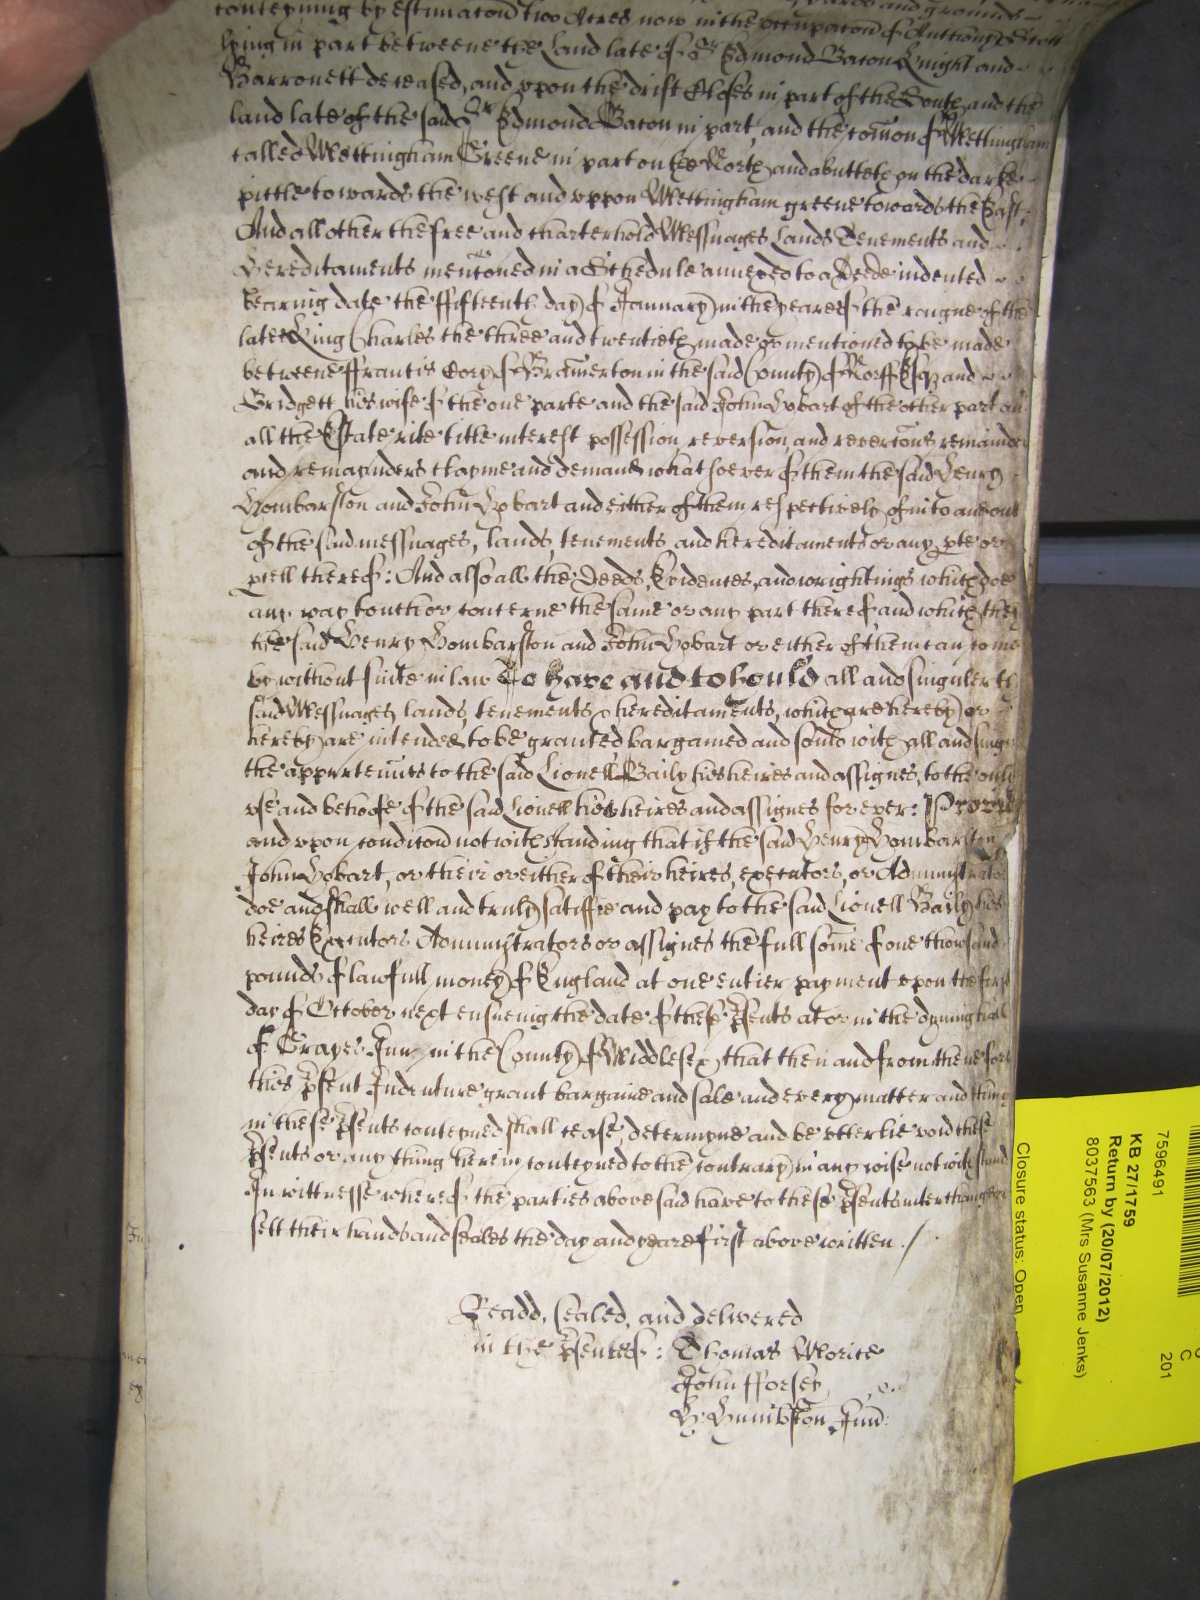 yards and grounds
conteyning by estimacon two Acres now in the occupacon of Anthony
lying in part betweene the Land late of Sr Edmond Bacon Knight and
Barronett deceased, and vpon the drift Closes in part of the South and the
land late of the said Sr Edmond Bacon in part, and the comon of Mettingham
called Mettingham Greene in part on the North and abutteth on the
pittle towards the west and vppon Mettingham greene towards the East,
And all other the free and charterhold Messuages Lands Tenements and
Hereditaments mencioned in a Schedule annexed to a Deede indented
bearing date the ffifteenth day of January in the yeare of the raigne of the
late King Charles the three and twentieth made or mencioned to be made
betweene ffrancis Cory of Bramerton in the said County of Norff Esqr and
Bridgett his wife of the one parte and the said John Hobart of the other part and
all the Estate title interest possession, reversion, and revercons remainder
and remaynders clayme and demand whatsoever of them the said Henry
Hombarston and John Hobart and either of them respectively of in to and out
of the said messuages, lands, tenements and hereditaments or any pte or
pcell thereof: And also all the Deeds, Evidences, and wrightings which doe
any way touch or concerne the same or any part thereof and which they
the said Henry Hombarston and John Hobart or either of them can come
by without suite in law To have and to hould all and singuler the
said Messuages, lands, tenements & hereditaments, which are hereby or
hereby are intended to be granted bargained and sould with all and singuler
the appurtenncs to the said Lionell Baily his heires and assignes, to the only
vse and behoofe of the said Lionell his heires and assignes for ever: Provided
and vpon condicon notwithstanding that if the said Henry Hombarston
John Hobart, or their or either of their heires, executors, or Administrators
doe and shall well and truly satisfie and pay to the said Lionell Baily his
heires Executors Administrators or assignes the full some of one thowsand
pounds of lawfull money of England at one entier payment vpon the first
day of October next ensueing the date of these psents at or in the dyning hall
of Grayes Inn in the County of Middlesex that then and from thence forth
this psent Indenture grant bargaine and sale and every matter and thing
in these psents conteyned shall cease, determyne and be vtterlie void these
psents or any thing herein conteyned to the contrary in any wise notwithstand
In wittnesse whereof the parties above said have to these psents interchangeably
sett their hands and seales the day and yeare first above written ./
Readd, sealed, and delivered
in the psence of: Thomas
John fforsey
H: Jun:
7596491
KB 27/1759
Return by (20/07/2012)
8037563 (Mrs Susanne Jenks)
Closure status: Open
C
201